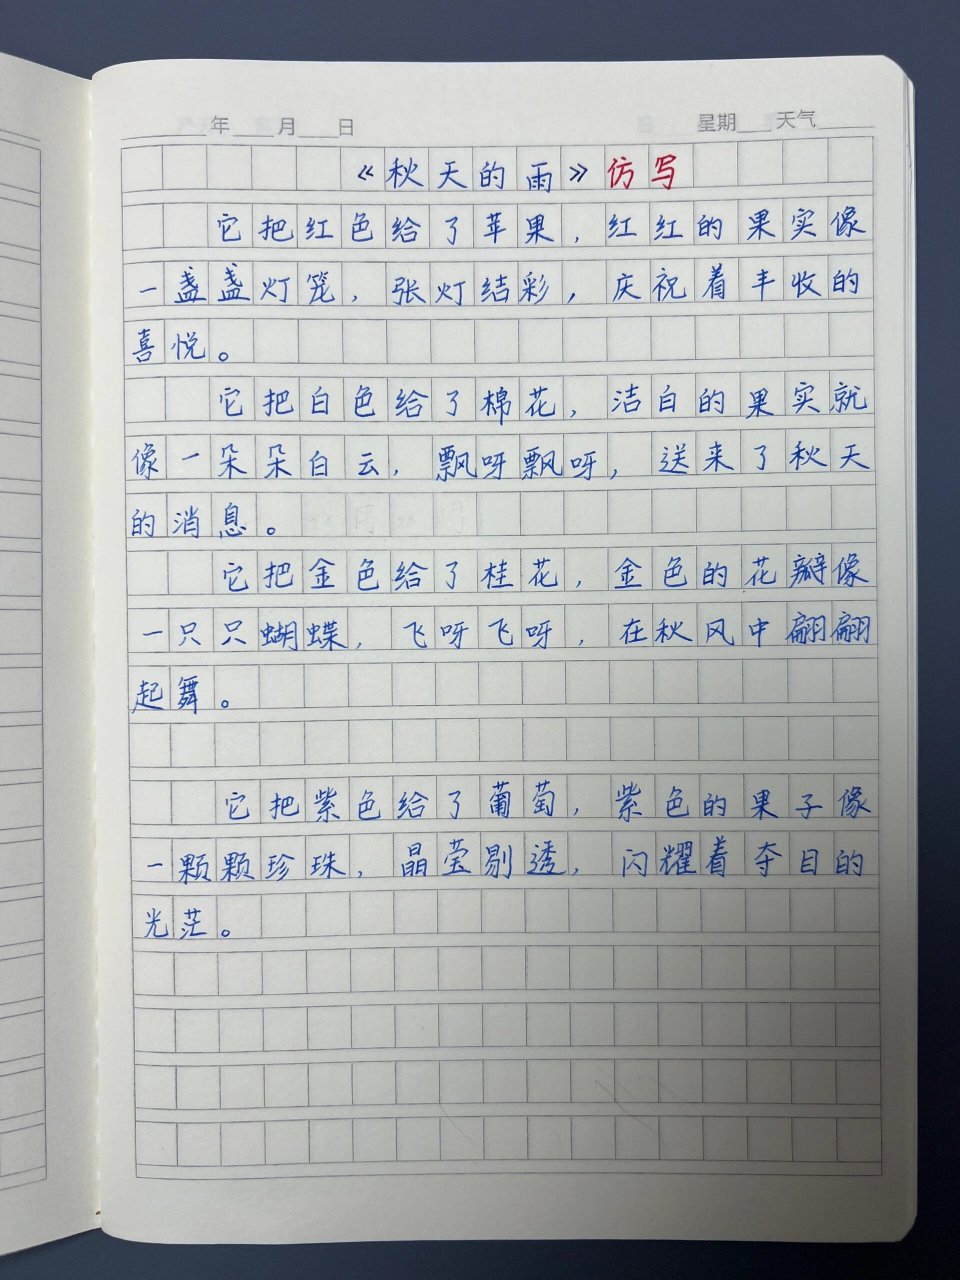 年 月 日 星期 天气
《秋天的雨》仿写
它把红色给了苹果，红红的果实像
一盏盏灯笼，张灯结彩，庆祝着丰收的
喜悦。
它把白色给了棉花，洁白的果实就
像一朵朵白云，飘呀飘呀，送来了秋天
的消息。
它把金色给了桂花，金色的花瓣像
一只只蝴蝶，飞呀飞呀，在秋风中翩翩
起舞。
它把紫色给了葡萄，紫色的果子像
一颗颗珍珠，晶莹剔透，闪耀着夺目的
光茫。